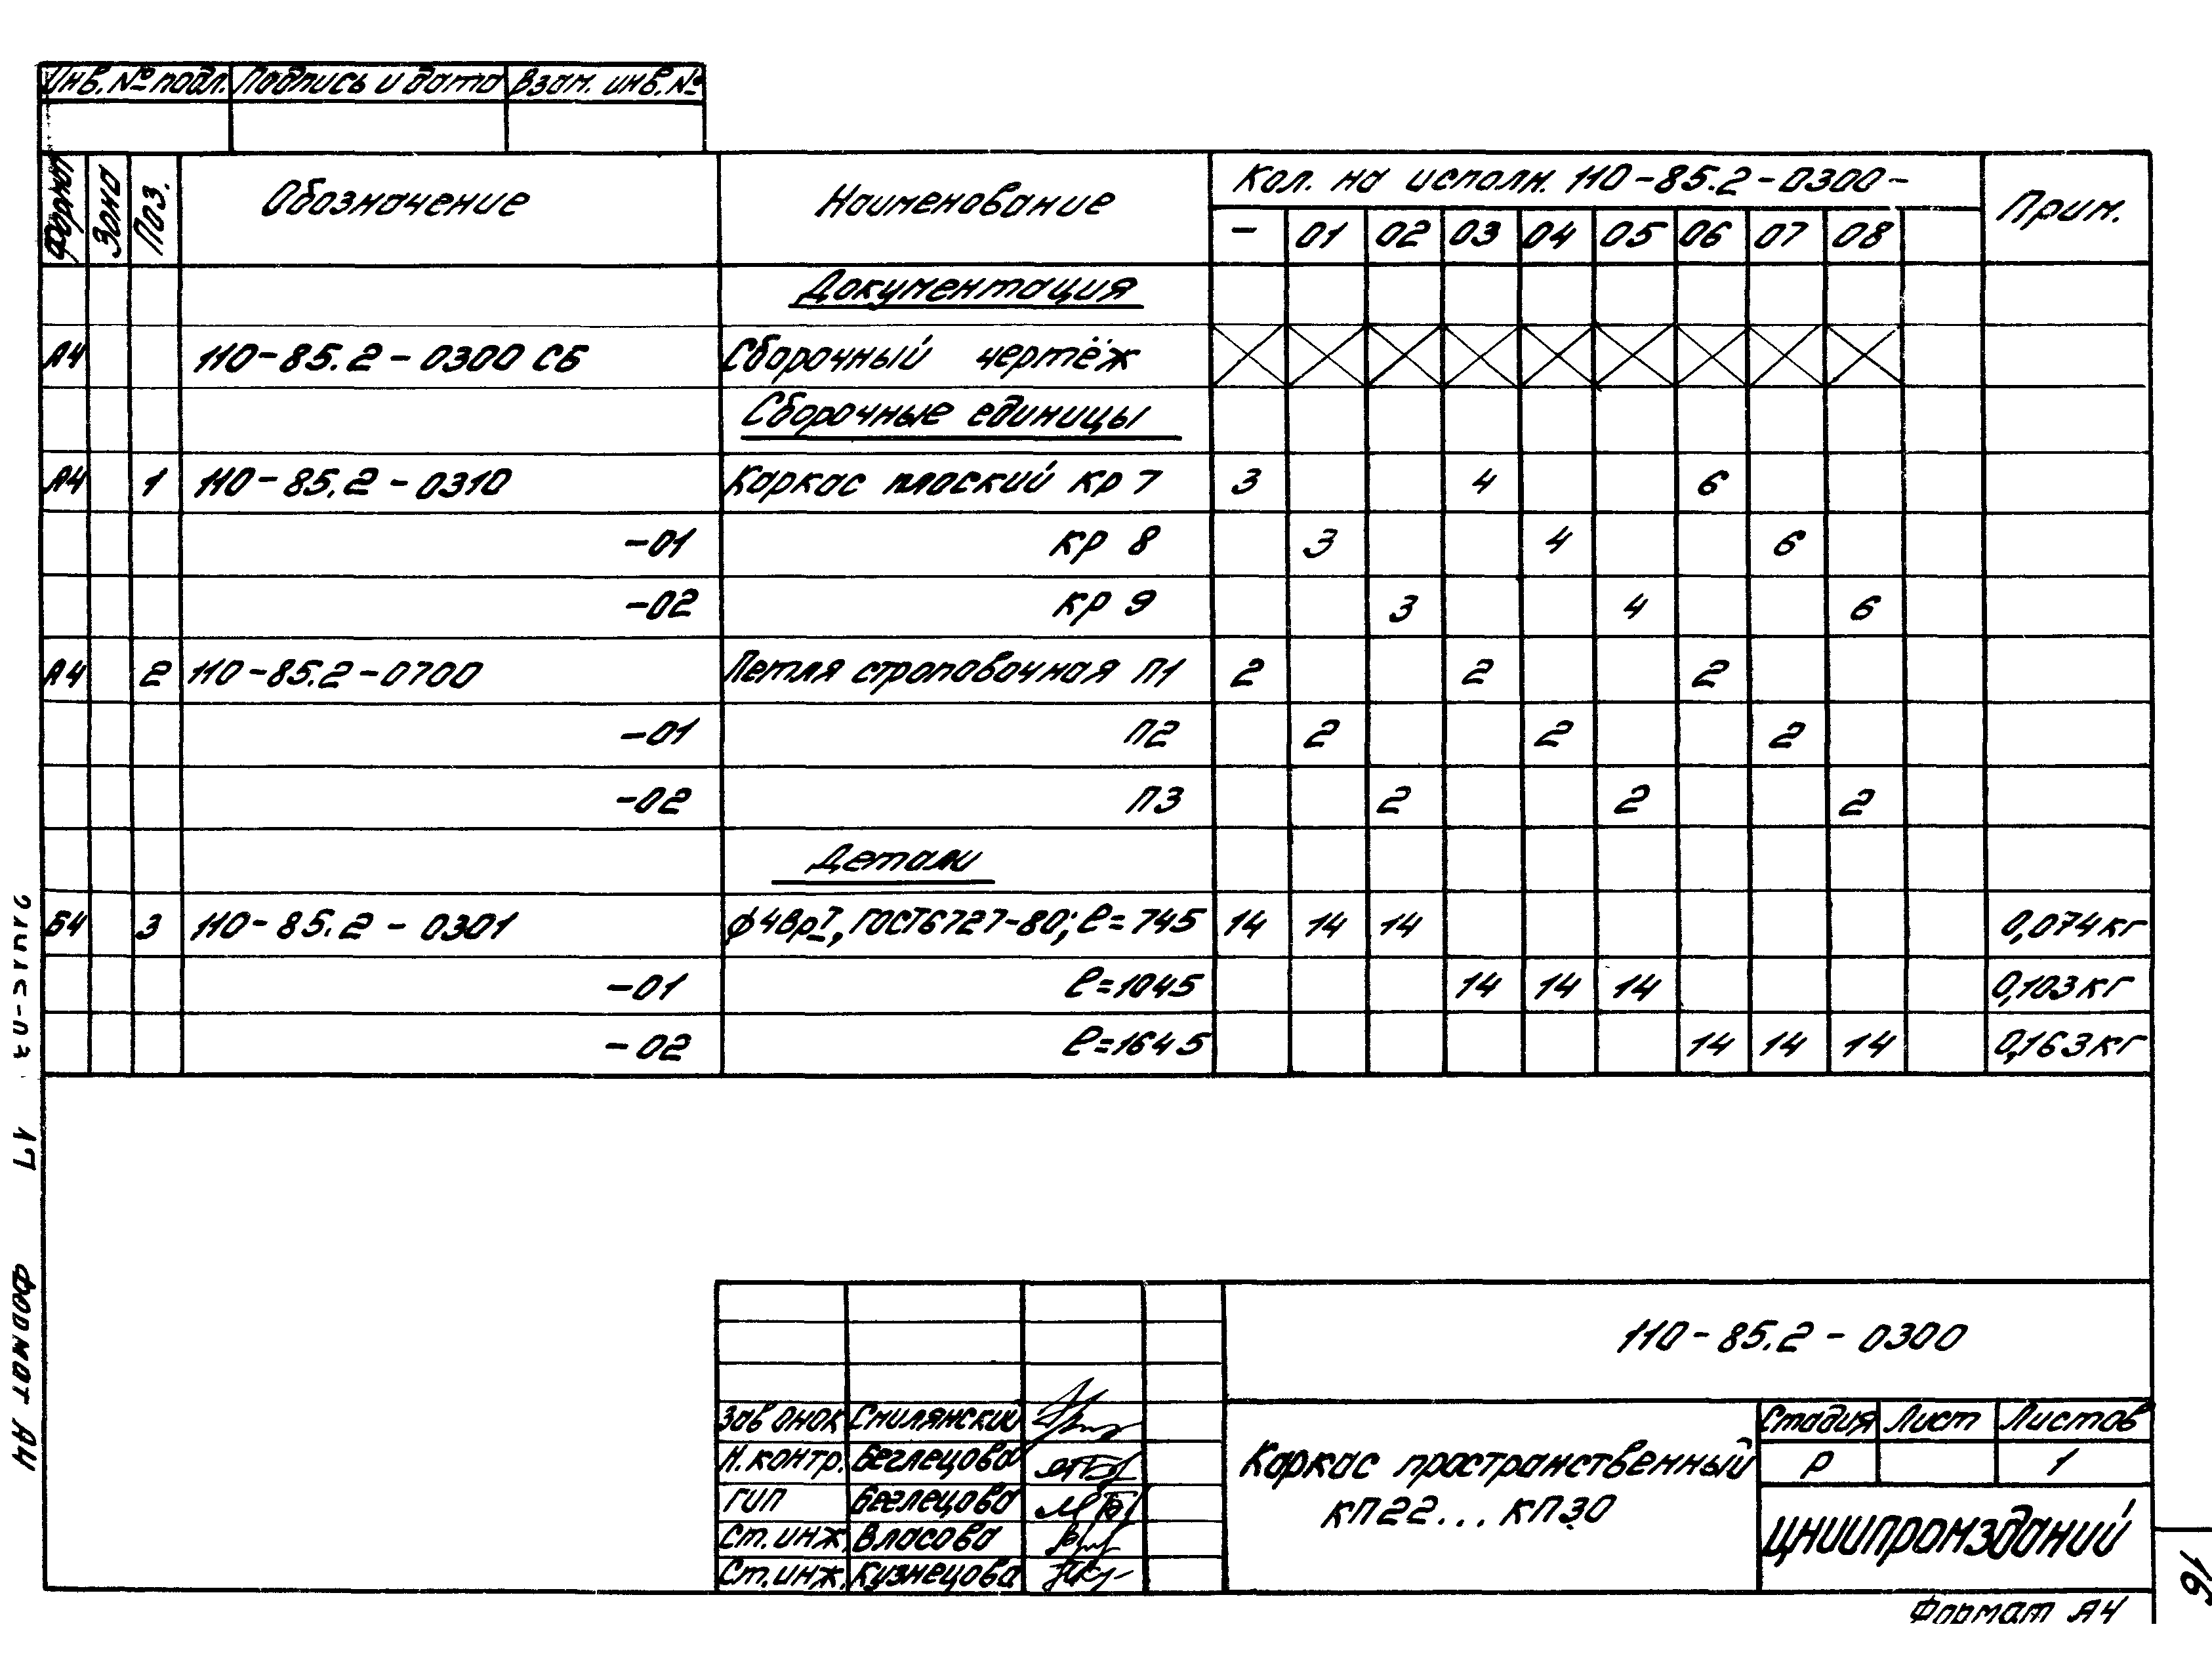 Инв. № подл. Подпись и дата Взам. инв. №
Формат Зона Поз. Обозначение Наименование Кол. на исполн. 110-85.2-0300- Прим.
- 01 02 03 04 05 06 07 08
Документация
А4 110-85.2-0300 СБ Сборочный чертёж
Сборочные единицы
А4 1 110-85.2-0310 Каркас плоский кр 7 3 4 6
-01 кр 8 3 4 6
-02 кр 9 3 4 6
А4 2 110-85.2-0700 Петля строповочная П1 2 2 2
-01 П2 2 2 2
-02 П3 2 2 2
Детали
Б4 3 110-85.2-0301 ф4ВрI, ГОСТ6727-80; ℓ=745 14 14 14 0,074кг
-01 ℓ=1045 14 14 14 0,103кг
-02 ℓ=1645 14 14 14 0,163кг
17 Формат А4
110-85.2-0300
Зав онок Смилянский
Н.контр. Беглецова
ГИП Беглецова
Ст.инж. Власова
Ст.инж. Кузнецова
Каркас пространственный
КП22...КП30
Стадия Лист Листов
Р 1
ЦНИИПРОМЗДАНИЙ
16
Формат А4